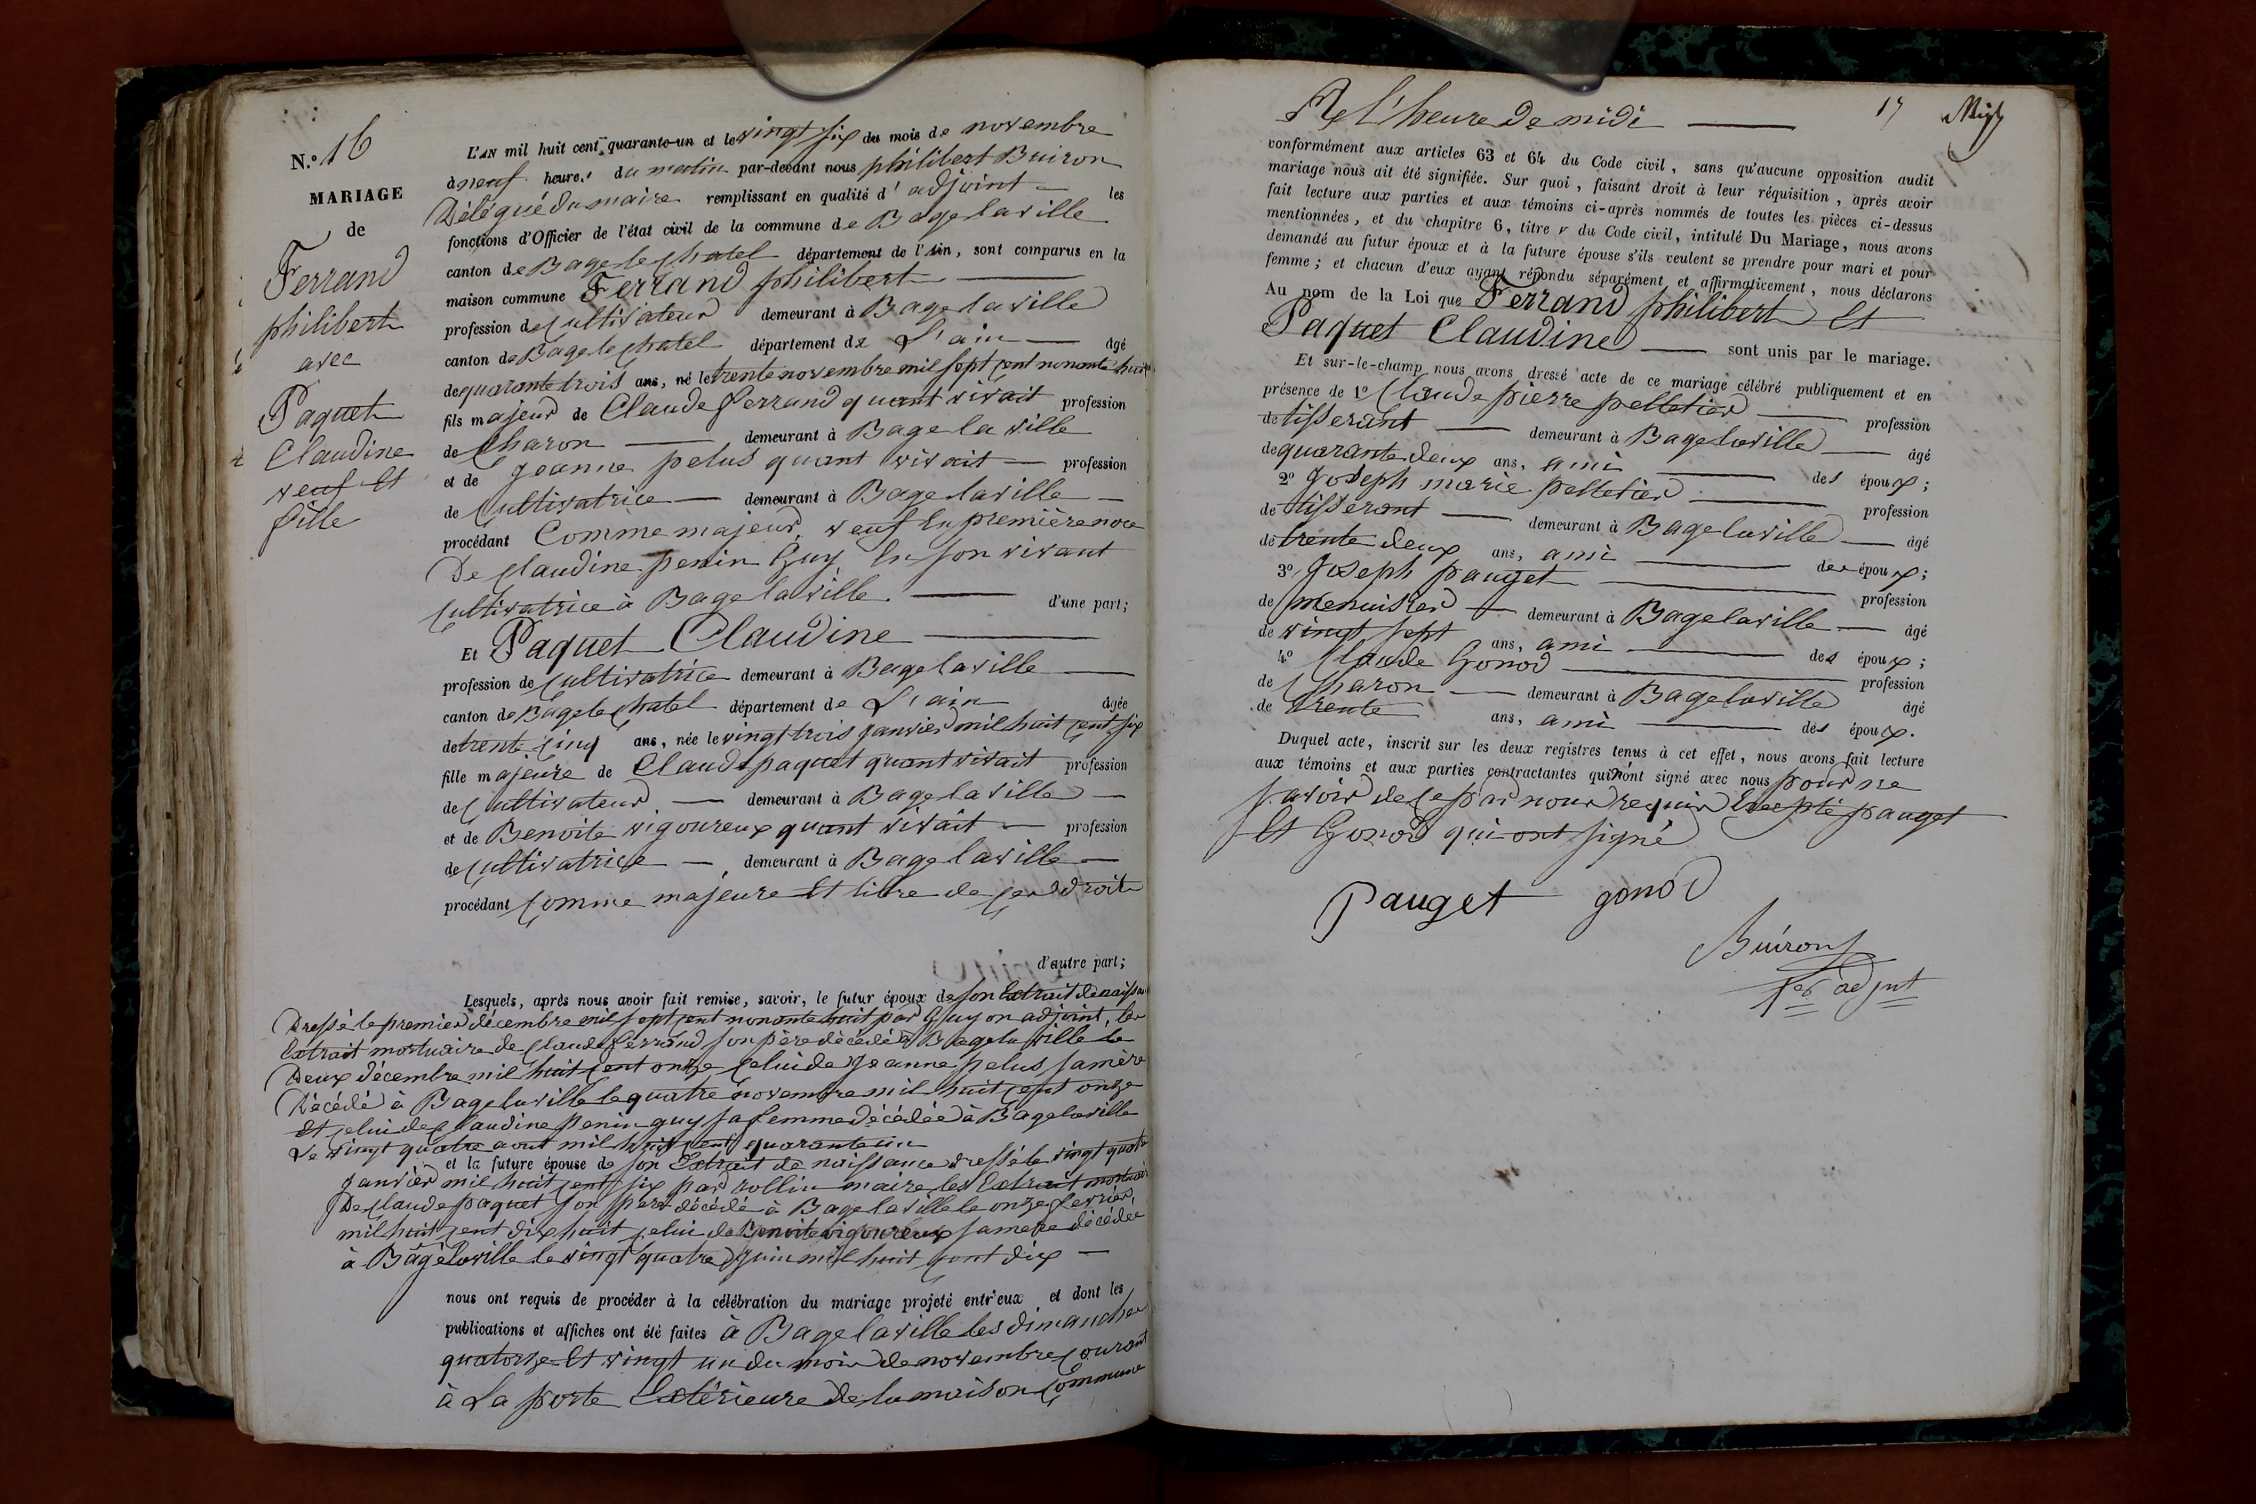 N.º 16
MARIAGE
de
Ferrand
philibert
avec
Paquet
Claudine
veuf Et
fille
L'AN mil huit cent quarante-un et le vingt six du mois de novembre
à neuf heures du matin par-devant nous philibert Buiron
Délégué du maire remplissant en qualité d'adjoint les
fonctions d'Officier de l'état civil de la commune de Bage la ville
canton de Bage le chatel département de l'Ain, sont comparus en la
maison commune Ferrand philibert
profession de Cultivateur demeurant à Bage la ville
canton de Bage le chatel département de L'ain âgé
de quarante trois ans, né le trente novembre mil sept cent nonante huit
fils majeur de Claude ferrand quant vivait profession
de Charon demeurant à Bage la ville
et de jeanne pelus quant vivait profession
de Cultivatrice demeurant à Bage la ville
procédant Comme majeur, veuf En première noce
De Claudine penin Guy En son vivant
Cultivatrice à Bage la ville. d'une part;
Et Paquet Claudine
profession de Cultivatrice demeurant à Bage la ville
canton de Bage le chatel département de L'ain âgée
de trente cinq ans, née le vingt trois janvier mil huit cent six
fille majeure de Claude paquet quant vivait profession
de Cultivateur demeurant à Bage la ville
et de Benoite vigoureux quant vivait profession
de Cultivatrice demeurant à Bage la ville
procédant Comme majeure Et libre de ces droits
d'autre part;
Lesquels, après nous avoir fait remise, savoir, le futur époux de son Extrait de naissance
Dressé le premier décembre mil sept cent nonante huit par Guyon adjoint, les
Extrait mortuaire de Claude ferrand son père décédé à Bage la ville le
Deux décembre mil huit cent onze celui de Jeanne pelus sa mère
Décédé à Bage la ville le quatre novembre mil huit cent onze
Et celui de Claudine penin guy sa femme décédée à Bage la ville
Le vingt quatre aout mil huit cent quarante un
et la future épouse de son Extrait de naissance dressé le vingt quatre
janvier mil huit cent six par rollin maire les Extrait mortuaire
De Claude paquet son père décédé à Bage la ville le onze fevrier
mil huit cent dix huit celui de Benoite vigoureux sa mere décédée
à Bage la ville le vingt quatre Juin mil huit cent dix
nous ont requis de procéder à la célébration du mariage projeté entr'eux et dont les
publications et affiches ont été faites à Bage la ville les dimanches
quatorze Et vingt un du mois de novembre courant
à La porte Extérieure de la maison Commune
17
A l'heure de midi
conformément aux articles 63 et 64 du Code civil, sans qu'aucune opposition audit
mariage nous ait été signifiée. Sur quoi, faisant droit à leur réquisition, après avoir
fait lecture aux parties et aux témoins ci-après nommés de toutes les pièces ci-dessus
mentionnées, et du chapitre 6, titre v du Code civil, intitulé Du Mariage, nous avons
demandé au futur époux et à la future épouse s'ils veulent se prendre pour mari et pour
femme; et chacun d'eux ayant répondu séparément et affirmativement, nous déclarons
Au nom de la Loi que Ferrand philibert Et
Paquet Claudine sont unis par le mariage.
Et sur-le-champ nous avons dressé acte de ce mariage célébré publiquement et en
présence de 1º Claude pierre pelletier profession
de tisserant demeurant à Bage la ville âgé
de quarante deux ans, ami des époux;
2º joseph marie pelletier profession
de tisserant demeurant à Bage la ville âgé
de trente deux ans, ami des époux;
3º Joseph pauget profession
de menuisier demeurant à Bage la ville âgé
de vingt sept ans, ami des époux;
4º Claude Gonod profession
de Charon demeurant à Bage la ville âgé
de trente ans, ami des époux.
Duquel acte, inscrit sur les deux registres tenus à cet effet, nous avons fait lecture
aux témoins et aux parties contractantes qui n'ont signé avec nous pour ne
savoir de ce par nous requis Excepté pauget
Et Gonod qui ont signé
Pauget gonod
Buiron
1er adjnt